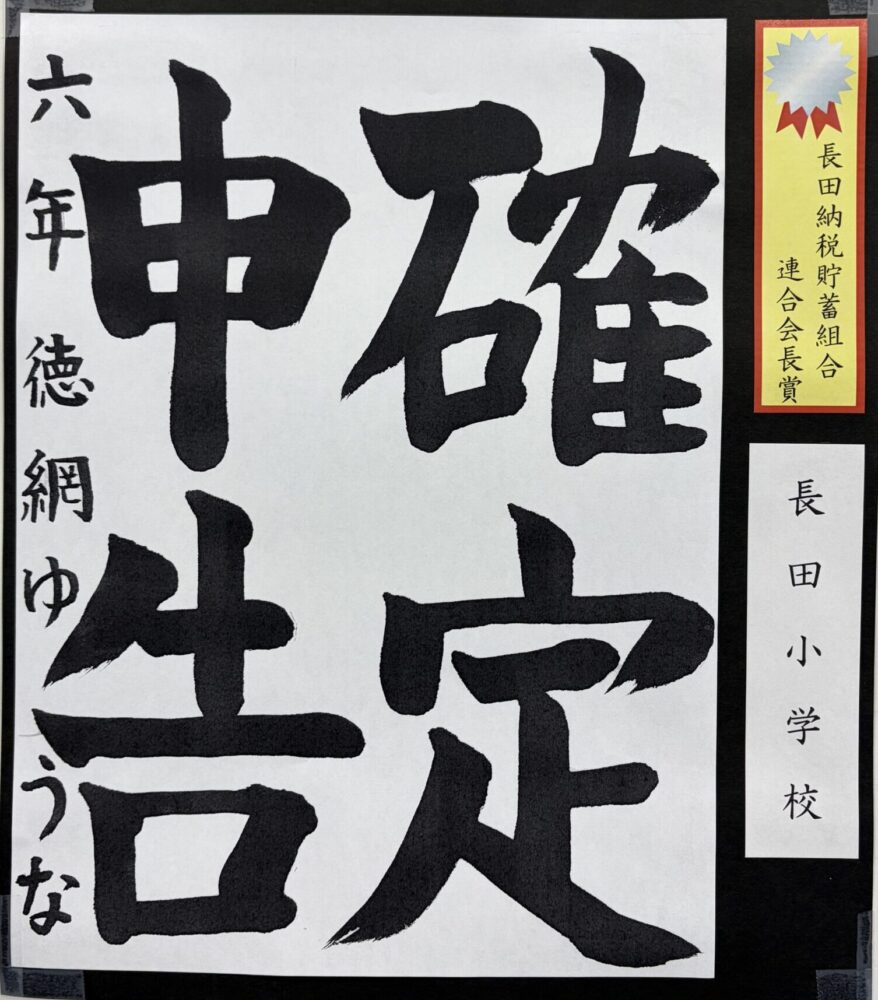 長田納税貯蓄組合
連合会長賞
長田小学校
確定
申告
六年徳網ゆうな